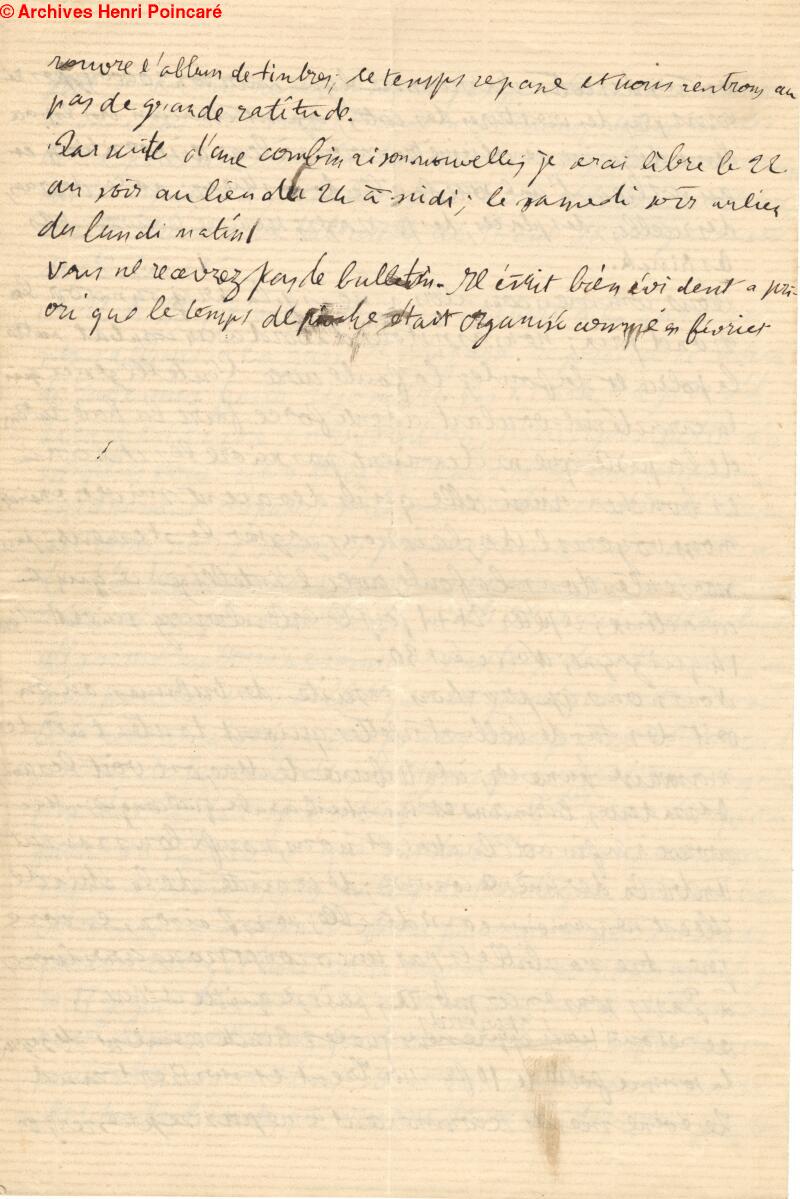 © Archives Henri Poincaré
rouvre l'album de timbres; le temps se passe et nous rentrons au
pas de grande ratitude.
Par suite d'une combinaison nouvelle, je serai libre le 22
au soir au lieu du 24 à midi; le samedi soir au lieu
du lundi matin!
Vous ne recevrez pas de bulletin. Il était bien évident a pri-
ori que le temps de était organisé comme en février